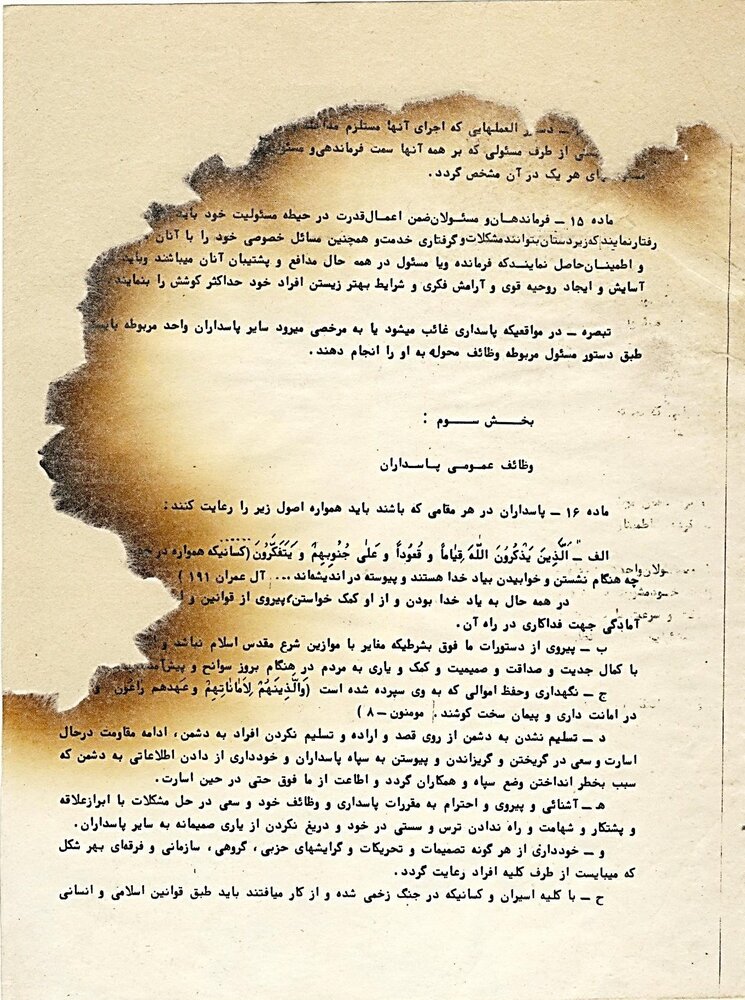 ـ دستور العملهایی که اجرای آنها مستلزم
از طرف مسئولی که بر همه آنها سمت فرماندهی و
هر یک در آن مشخص گردد .
ماده ۱۵ ـ فرماندهان و مسئولان ضمن اعمال قدرت در حیطه مسئولیت خود باید
رفتار نمایند که زیردستان بتوانند مشکلات و گرفتاری خدمت و همچنین مسائل خصوصی خود را با آنان
و اطمینان حاصل نمایند که فرمانده ویا مسئول در همه حال مدافع و پشتیبان آنان میباشند وباید
آسایش و ایجاد روحیه قوی و آرامش فکری و شرایط بهتر زیستن افراد خود حداکثر کوشش را بنمایند
تبصره ـ در مواقعیکه پاسداری غائب میشود یا به مرخصی میرود سایر پاسداران واحد مربوطه
طبق دستور مسئول مربوطه وظائف محوله به او را انجام دهند .
بخش سوم :
وظائف عمومی پاسداران
ماده ۱۶ ـ پاسداران در هر مقامی که باشند باید همواره اصول زیر را رعایت کنند :
الف ـ اَلَّذِینَ یَذْکُرُونَ اللّٰهَ قِیٰاماً وَ قُعُوداً وَ عَلٰی جُنُوبِهِمْ وَ یَتَفَکَّرُونَ (کسانیکه همواره در
چه هنگام نشستن و خوابیدن بیاد خدا هستند و پیوسته در اندیشه‌اند ... آل عمران ۱۹۱ )
در همه حال به یاد خدا بودن و از او کمک خواستن، پیروی از قوانین و
آمادگی جهت فداکاری در راه آن .
ب ـ پیروی از دستورات ما فوق بشرطیکه مغایر با موازین شرع مقدس اسلام نباشد و
با کمال جدیت و صداقت و صمیمیت و کمک و یاری به مردم در هنگام بروز سوانح و
ج ـ نگهداری وحفظ اموالی که به وی سپرده شده است (وَالَّذِینَهُمْ لِاَمٰانٰاتِهِمْ وَ عَهدِهِم رٰاعُونَ و
در امانت داری و پیمان سخت کوشند . مومنون ـ ۸ )
د ـ تسلیم نشدن به دشمن از روی قصد و اراده و تسلیم نکردن افراد به دشمن، ادامه مقاومت درحال
اسارت و سعی در گریختن و گریزاندن و پیوستن به سپاه پاسداران و خودداری از دادن اطلاعاتی به دشمن که
سبب بخطر انداختن وضع سپاه و همکاران گردد و اطاعت از ما فوق حتی در حین اسارت .
هـ ـ آشنائی و پیروی و احترام به مقررات پاسداری و وظائف خود و سعی در حل مشکلات با ابرازعلاقه
و پشتکار و شهامت و راه ندادن ترس و سستی در خود و دریغ نکردن از یاری صمیمانه به سایر پاسداران .
و ـ خودداری از هر گونه تصمیمات و تحریکات و گرایشهای حزبی، گروهی، سازمانی و فرقه‌ای بهر شکل
که میبایست از طرف کلیه افراد رعایت گردد .
ح ـ با کلیه اسیران و کسانیکه در جنگ زخمی شده و از کار میافتند باید طبق قوانین اسلامی و انسانی